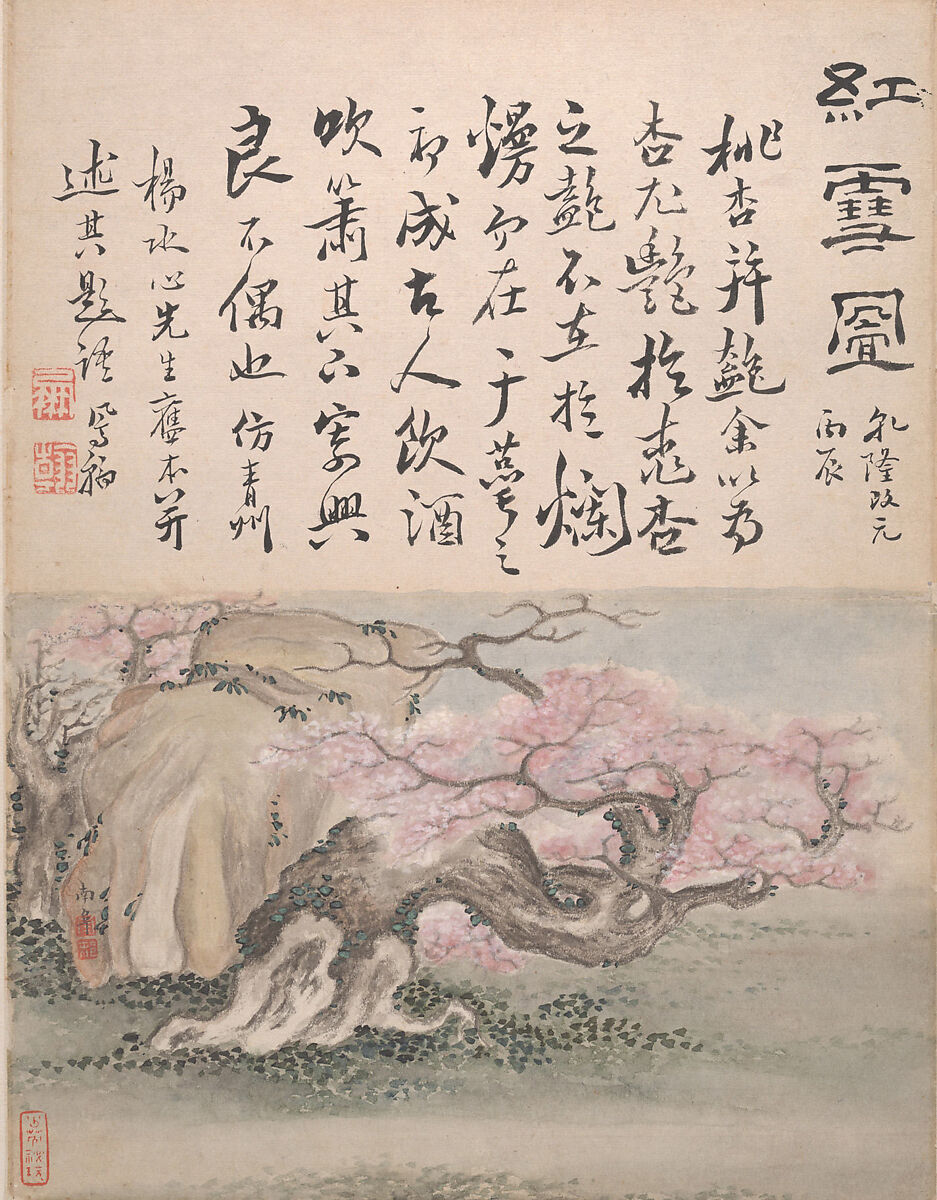 紅雪圖
乾隆改元
丙辰
桃杏并艷余以為
杏尤艷於桃杏
之艷不在於爛
熳而在于萼之
初成古人飲酒
吹簫其下寄興
良不偶也仿青州
楊水心先生舊本并
述其題語
南